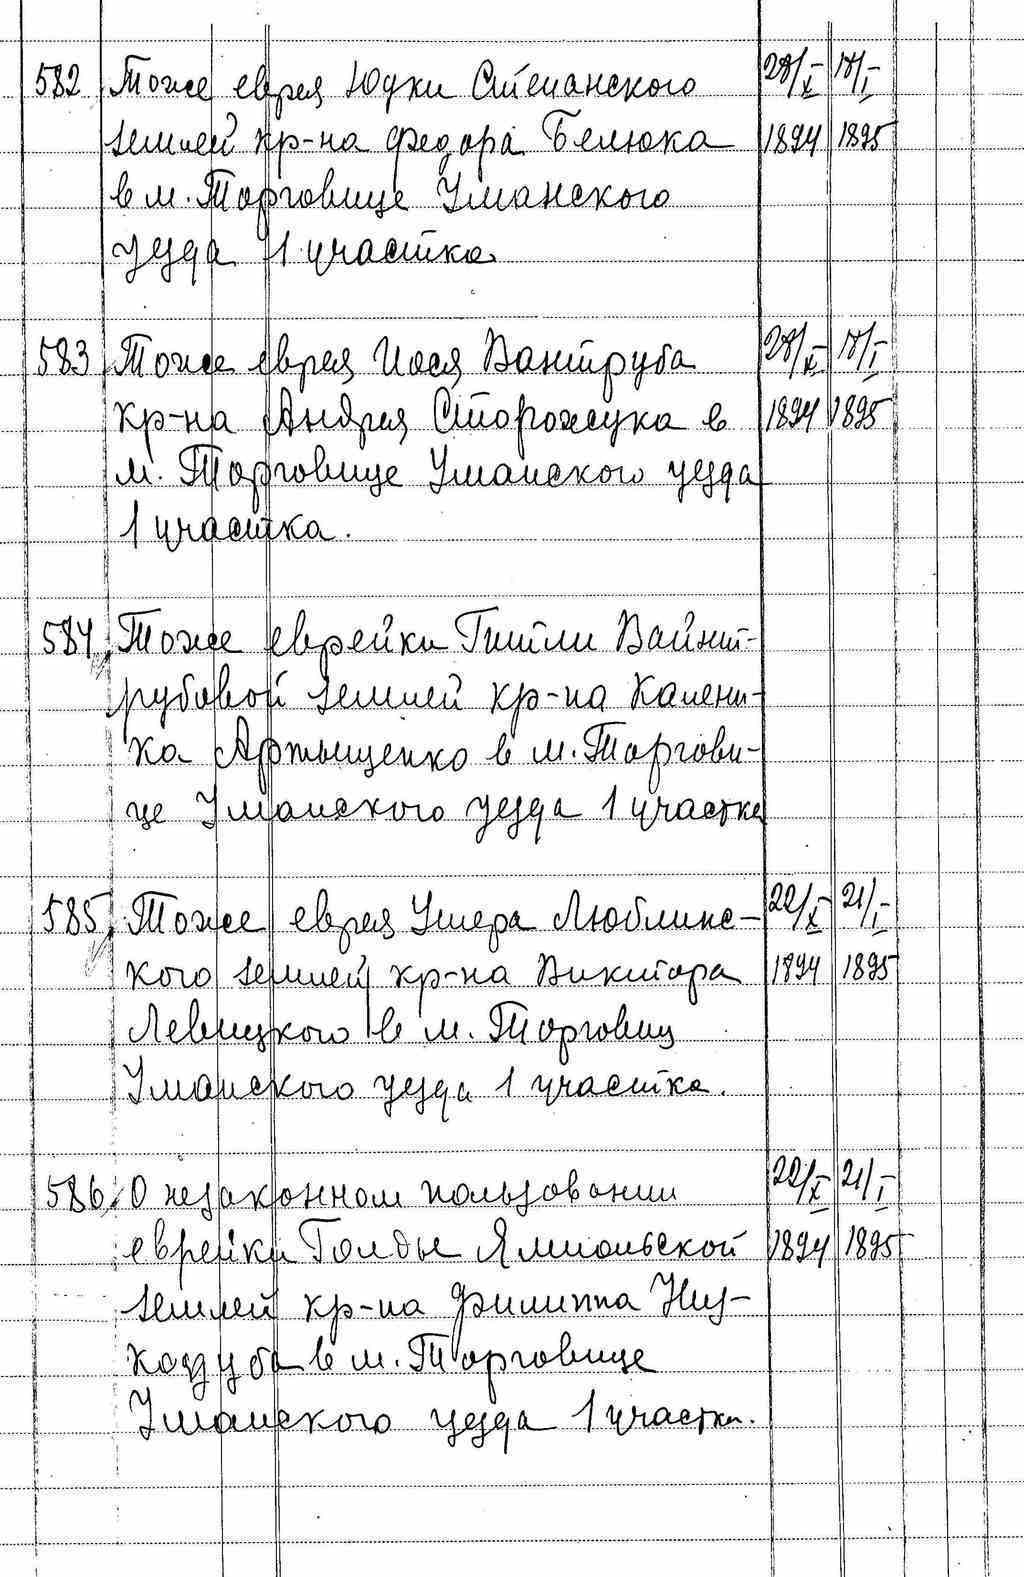 582 Тоже еврея Юдки Степанского 28/X 18/I
землей кр-на Федора Белюка 1894 1895
в м. Торговице Уманского
уезда 1 участка
583 Тоже еврея Иося Вантруба 28/X 18/I
кр-на Андрея Сторожука в 1894 1895
м. Торговице Уманского уезда
1 участка.
584 Тоже еврейки Гитли Вайнт-
рубовой землей кр-на Калени-
ка Артыщенко в м. Торгови-
це Уманского уезда 1 участка
585 Тоже еврея Ушера Люблинс- 22/X 21/I
кого землей кр-на Виктора 1894 1895
Левицкого в м. Торговиц
Уманского уезда 1 участка.
586 О незаконном пользовании 22/X 21/I
еврейки Голды Ямпольской 1894 1895
землей кр-на Филиппа
в м. Торговице
Уманского уезда 1 участка.